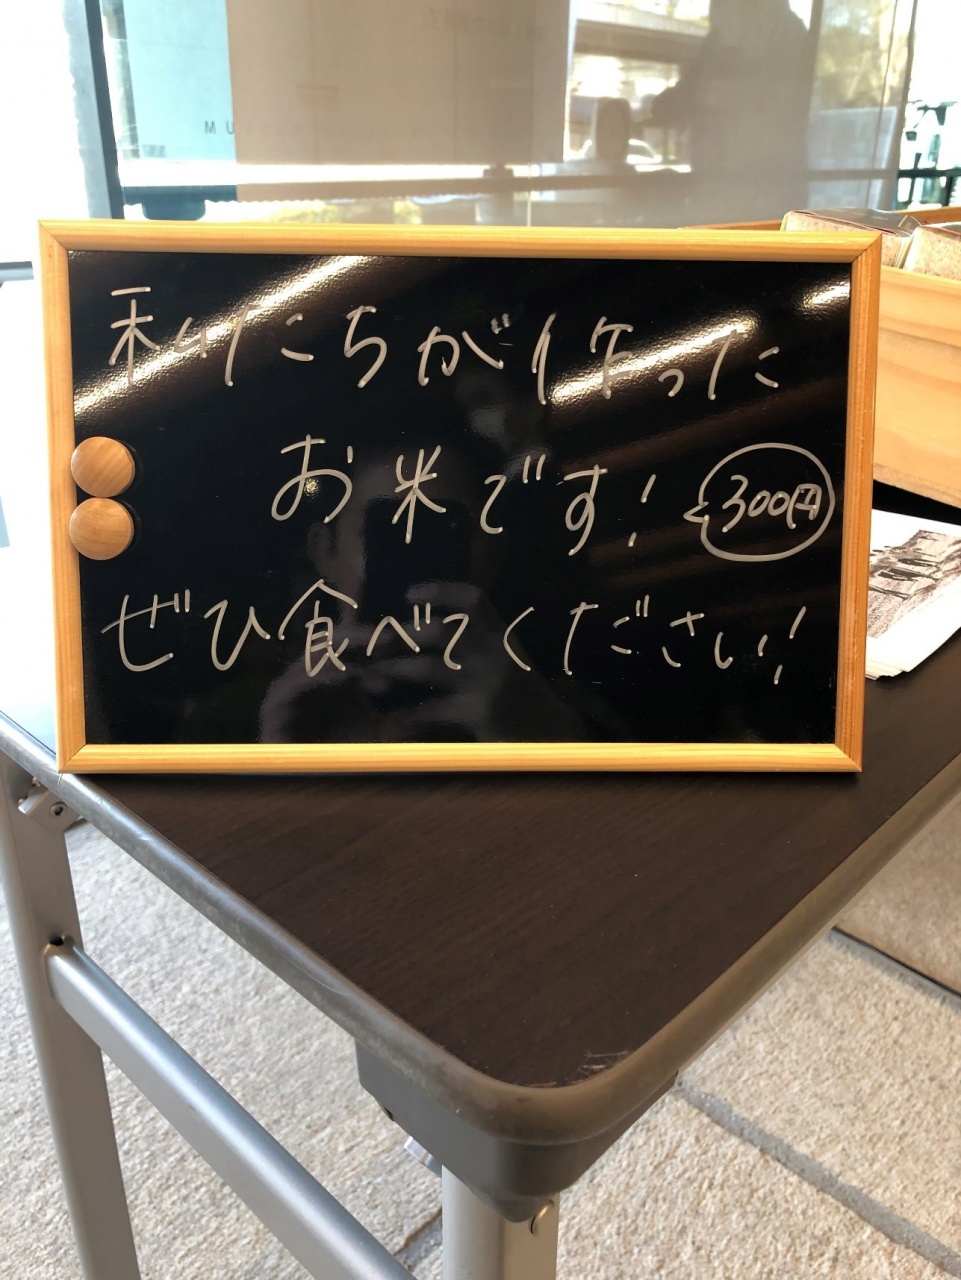 私たちが作った
お米です! 300円
ぜひ食べてください!
M
U M